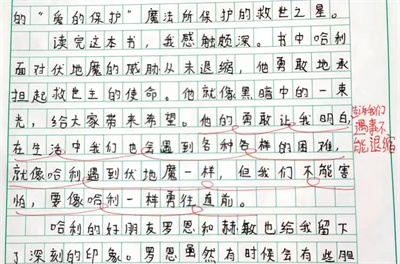 的“爱的保护”魔法所保护的救世之星。
读完这本书，我感触颇深。书中哈利
面对伏地魔的威胁从未退缩，他勇敢地承
担起救世主的使命。他就像黑暗中的一束
光，给大家带来希望。他的勇敢让我明白，
在生活中我们也会遇到各种各样的困难，
就像哈利遇到伏地魔一样，但我们不能害
怕，要像哈利一样勇往直前。
哈利的好朋友罗恩和赫敏也给我留下
了深刻的印象。罗恩虽然有时候会有些胆
告诉我们
遇事不
能退缩